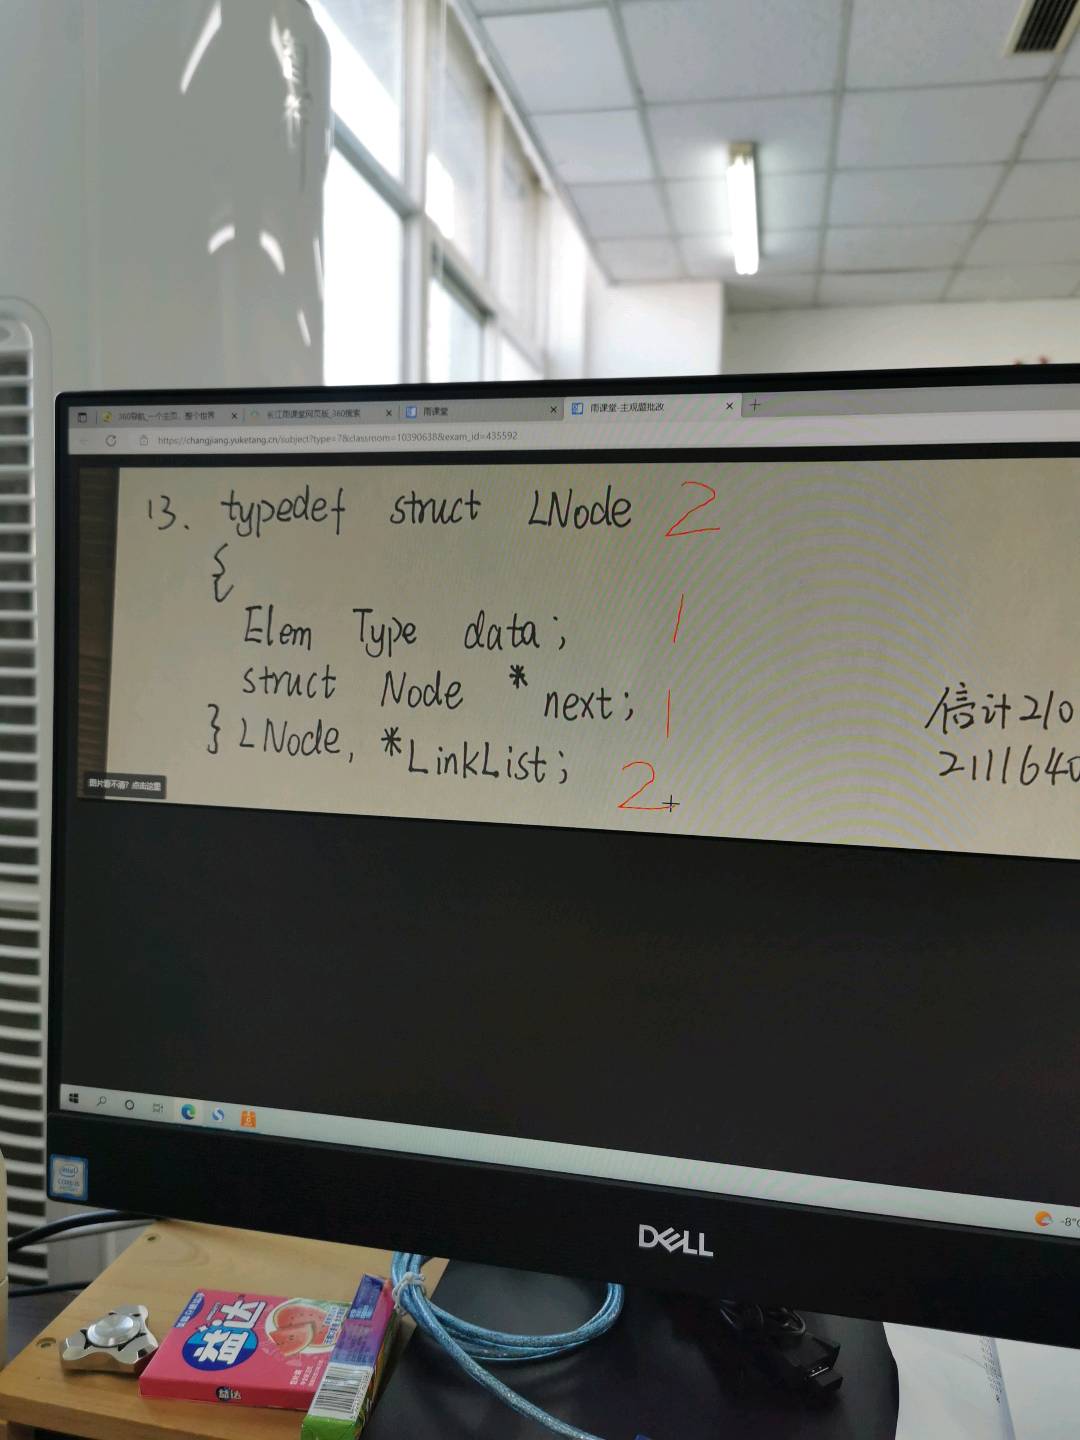 360导航_一个主页，整个世界
长江雨课堂网页版_360搜索
雨课堂
雨课堂-主观题批改
https://changjiang.yuketang.cn/subject?type=7&classroom=10390638&exam_id=435592
13. typedef struct LNode 2
{
Elem Type data; 1
struct Node * next; 1
} LNode, *LinkList; 2
倍计210
2111640
图片看不清? 点击这里
intel
CORE i5
-8°C
DELL
益达
益达